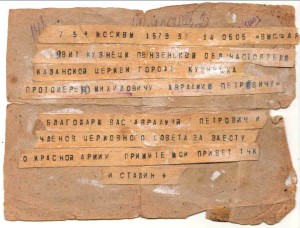 7 5 4 МОСКВЫ 1679 3 14 0505 =ВЫСШАЯ
КУЗНЕЦК ПЕНЗЕНСКОЙ ОБЛ НАСТОЯТЕЛЮ
КАЗАНСКОЙ ЦЕРКВИ ГОРОДА КУЗНЕЦКА
ПРОТОИЕРЕЮ МИХАЙЛОВИЧУ АВРАМИЮ ПЕТРОВИЧУ=
БЛАГОДАРЮ ВАС АВРАМИЙ ПЕТРОВИЧ И
ЧЛЕНОВ ЦЕРКОВНОГО СОВЕТА ЗА ЗАБОТУ
О КРАСНОЙ АРМИИ ПРИМИТЕ МОЙ ПРИВЕТ ТЧК
И СТАЛИН